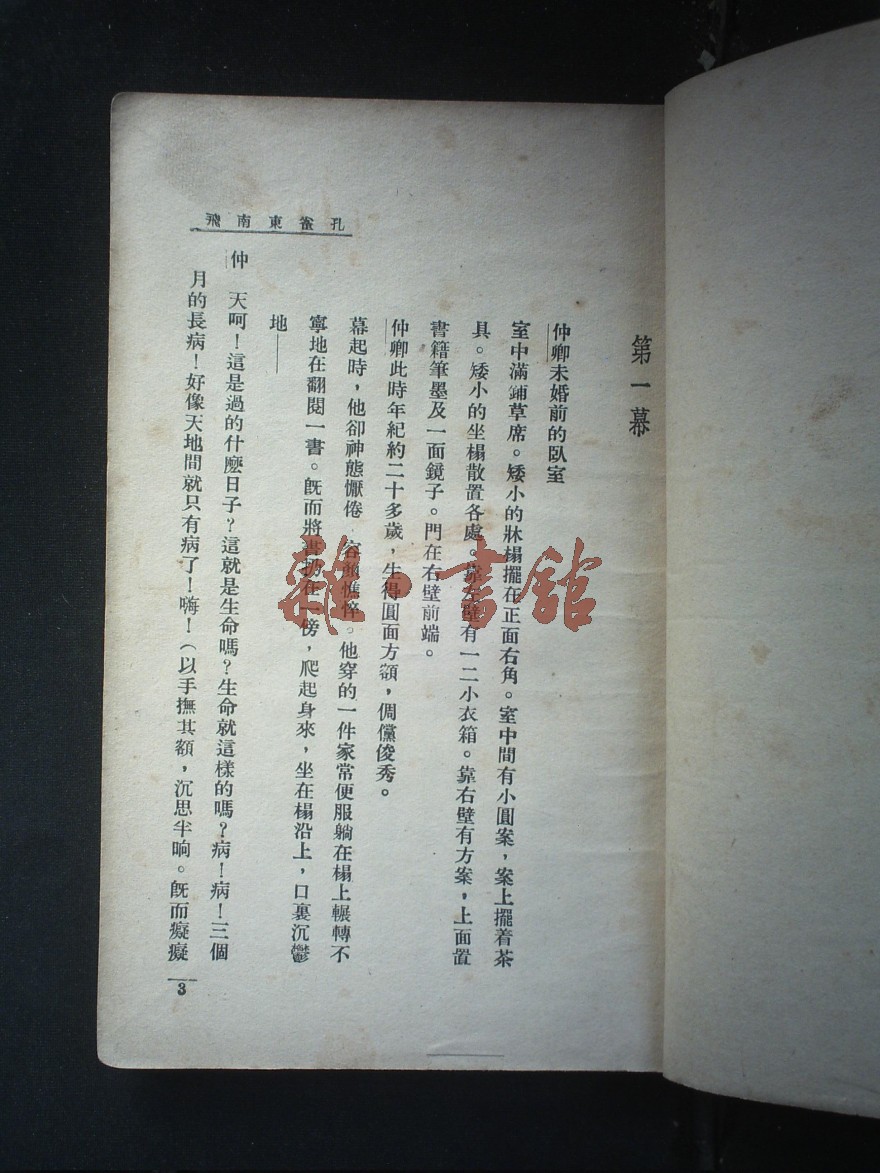 孔雀東南飛
第一幕
仲卿未婚前的臥室
室中滿鋪草席。矮小的牀榻擺在正面右角。室中間有小圓案,案上擺着茶
具。矮小的坐榻散置各處。靠左壁有一二小衣箱。靠右壁有方案,上面置
書籍筆墨及一面鏡子。門在右壁前端。
仲卿此時年紀約二十多歲,生得圓面方額,倜儻俊秀。
幕起時,他卻神態懨倦 容顏憔悴。他穿的一件家常便服躺在榻上輾轉不
寧地在翻閱一書。旣而將書扔在一傍,爬起身來,坐在榻沿上,口裏沉鬱
地——
仲 天呵!這是過的什麽日子?這就是生命嗎?生命就這樣的嗎?病!病!三個
月的長病!好像天地間就只有病了!嗨!(以手撫其額,沉思半晌。旣而癡癡
3
雜·書館